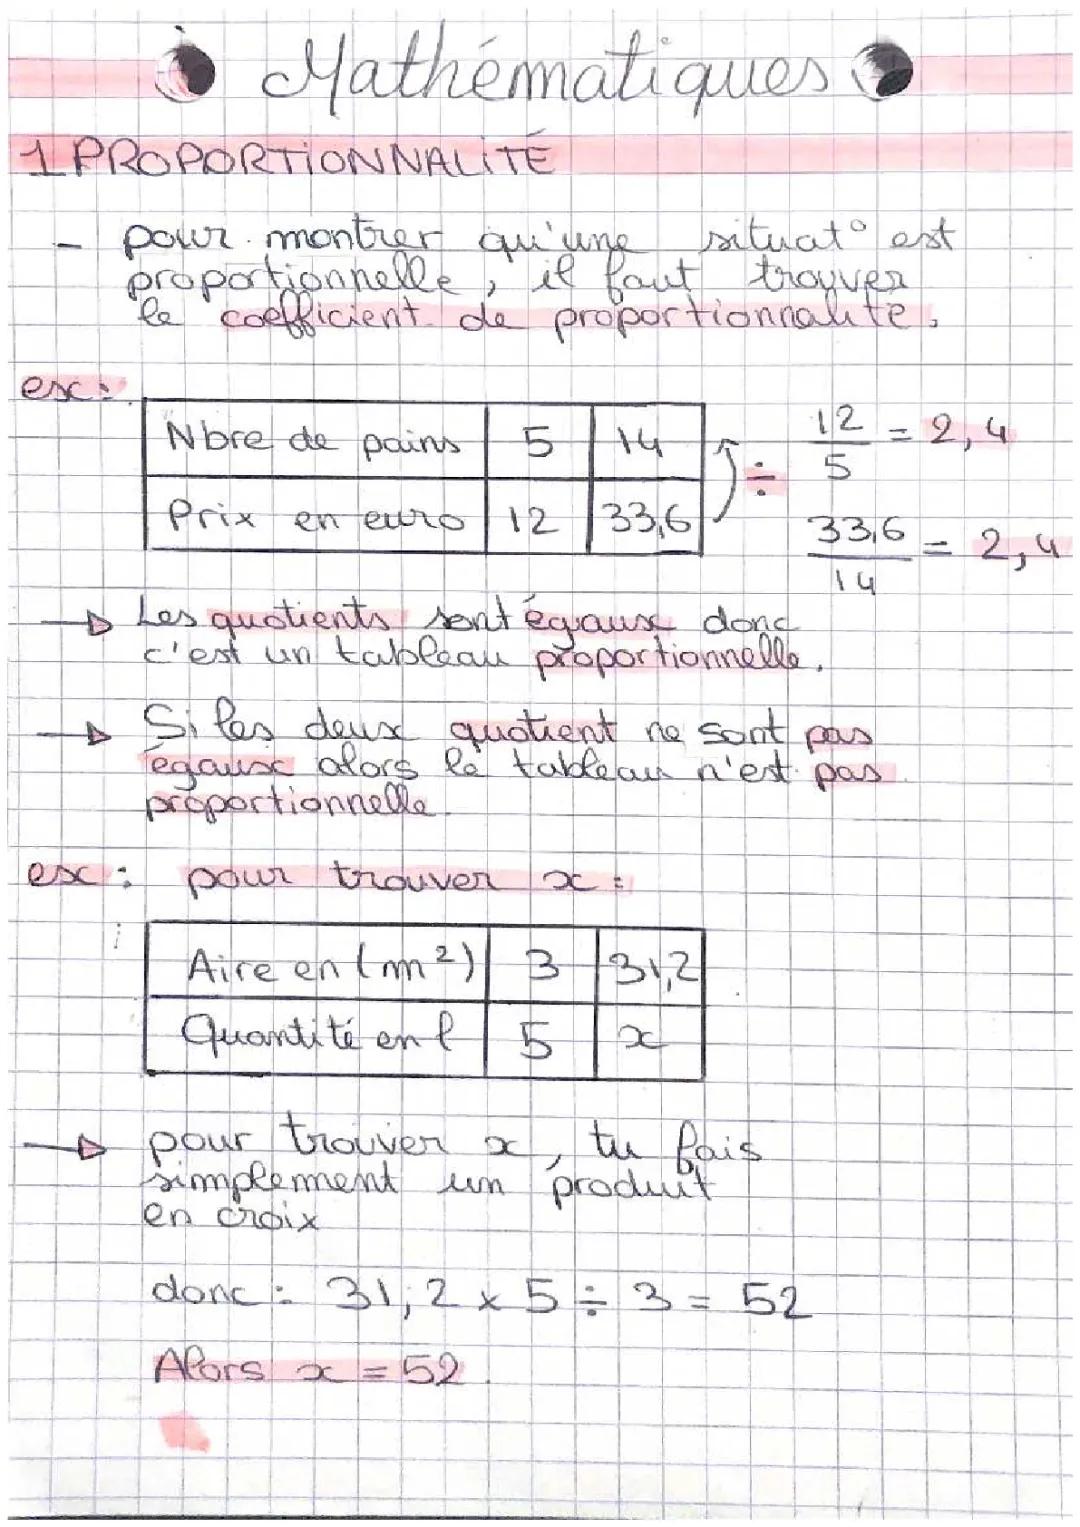 Mathématiques
1 PROPORTIONNALITÉ
- pour montrer qu'une situat° est
proportionnelle, il faut trouver
le coefficient de proportionnalité.
ex:
Nbre de pains 5 14
Prix en euro 12 33,6
÷
12/5 = 2,4
33,6/14 = 2,4
→ Les quotients sont égaux donc
c'est un tableau proportionnelle.
→ Si les deux quotient ne sont pas
égaux alors le tableau n'est pas
proportionnelle.
ex : pour trouver x :
Aire en (m²) 3 31,2
Quantité en l 5 x
→ pour trouver x, tu fais
simplement un produit
en croix
donc : 31,2 x 5 ÷ 3 = 52
Alors x = 52.